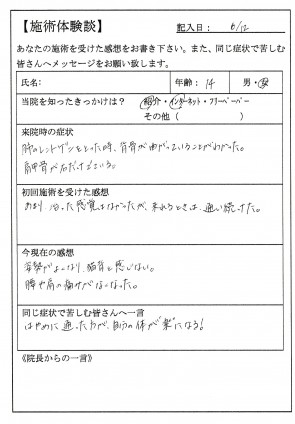 【施術体験談】
記入日： 6/12
あなたの施術を受けた感想をお書き下さい。また、同じ症状で苦しむ
皆さんへメッセージをお願い致します。
氏名:
年齢：14
男・女
当院を知ったきっかけは？
紹介・インターネット・フリーペーパー
その他（ ）
来院時の症状
肺のレントゲンをとった時、背骨が曲がっていることがわかった。
肩甲骨が右だけでている。
初回施術を受けた感想
あまり治った感覚はなかったが、来れるときは、通い続けた。
今現在の感想
姿勢がよくなり、猫背と感じない。
腰や肩の痛みがなくなった。
同じ症状で苦しむ皆さんへ一言
はやめに通った方が、自分の体が楽になる！
《院長からの一言》